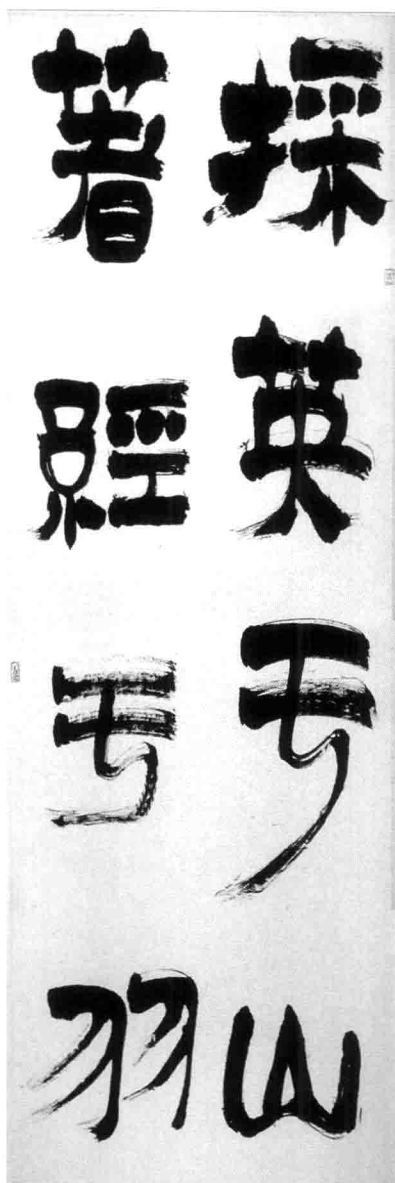 採英于山
著經于羽